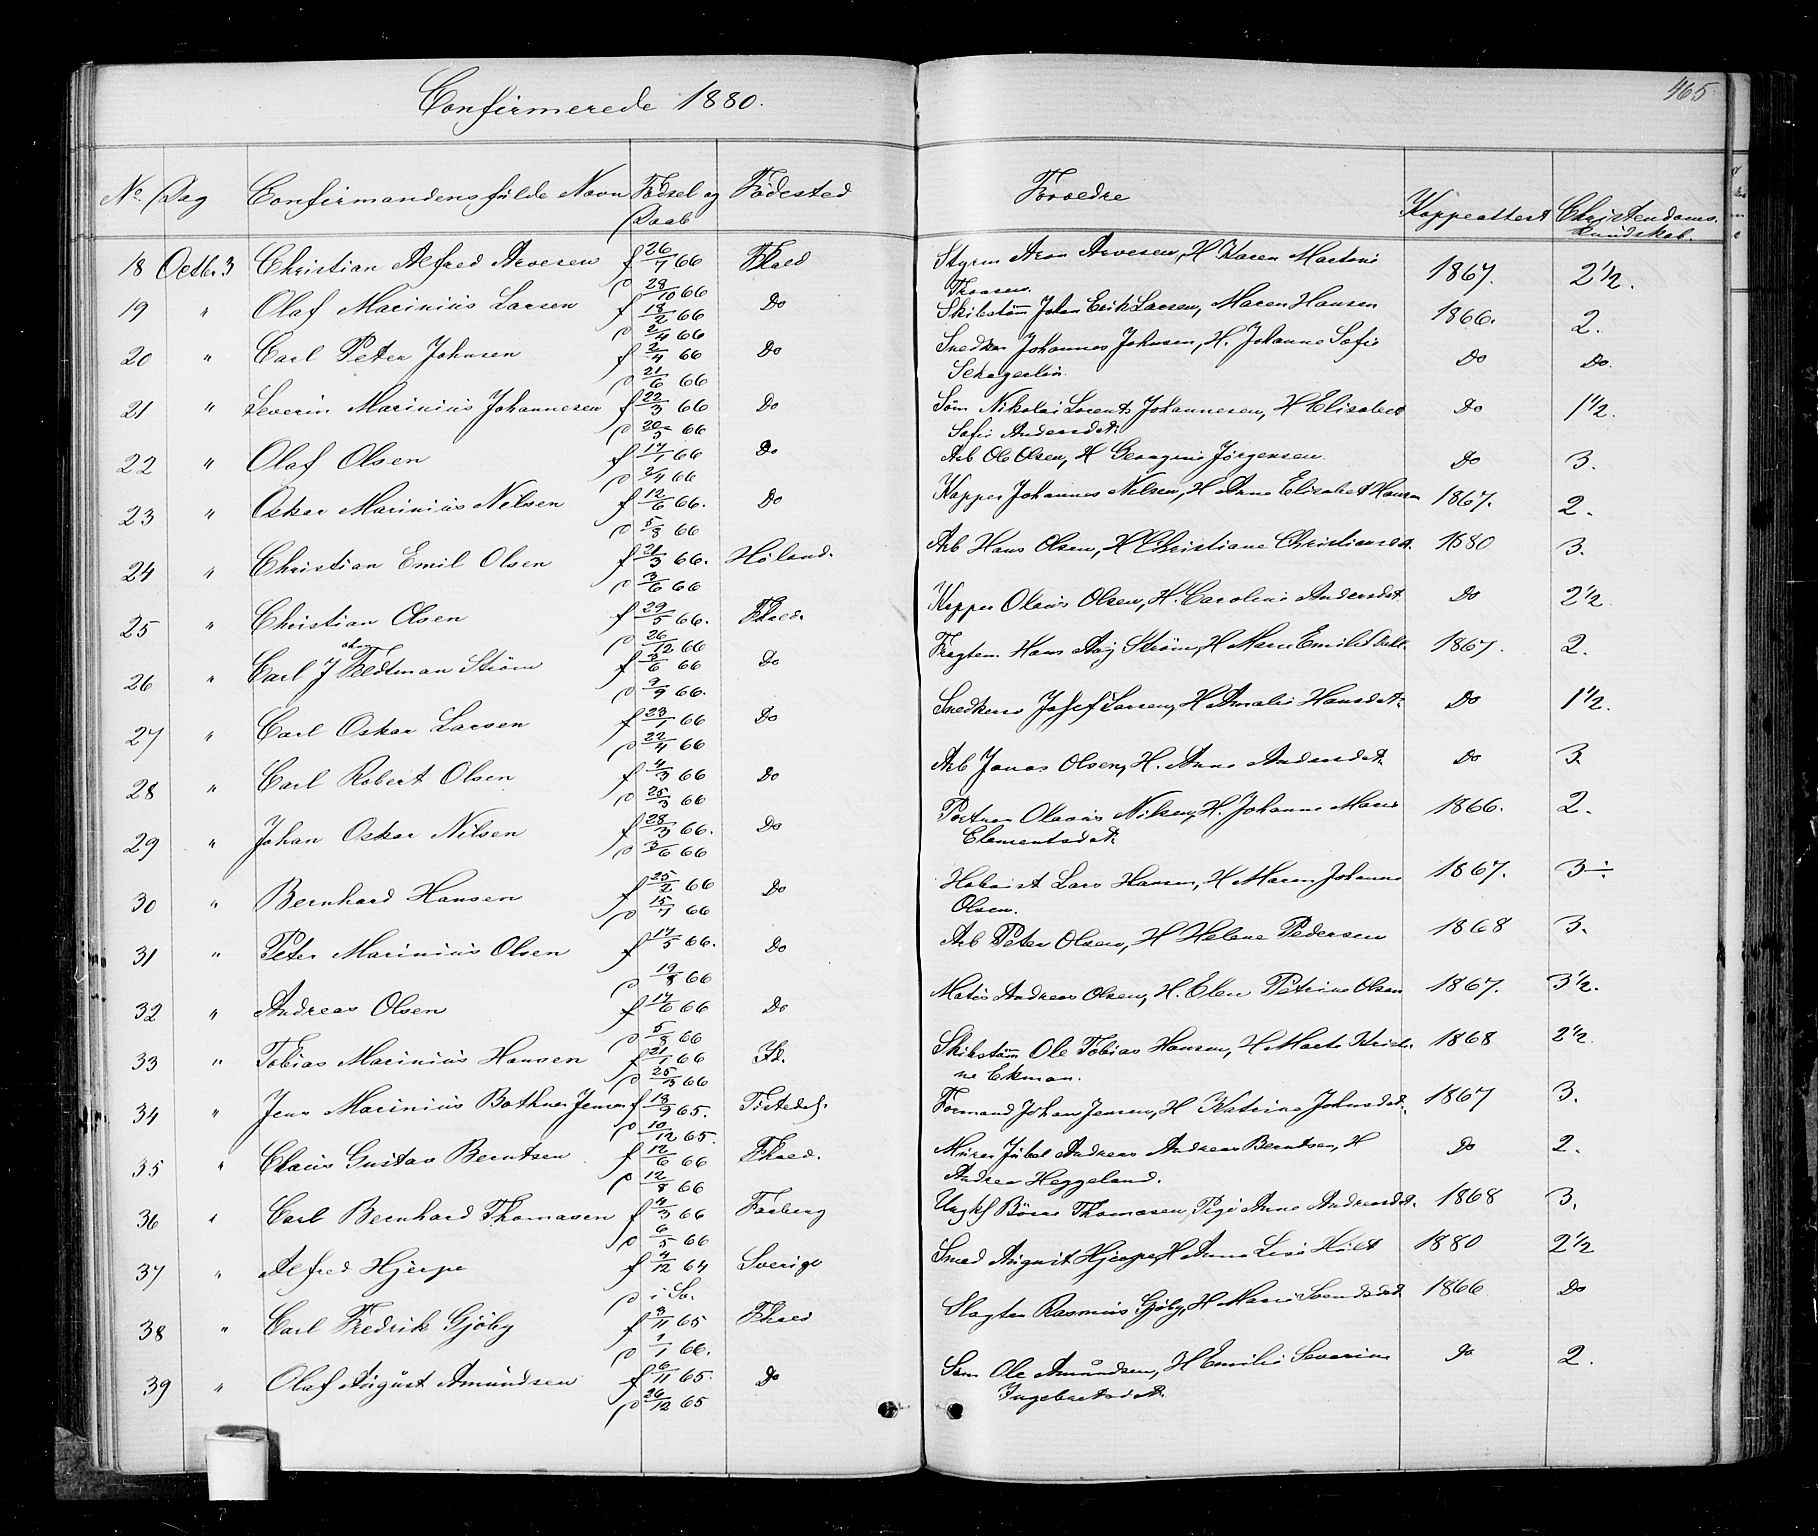 Confirmerede 1880.
465
No. Dag Confirmandens fulde Navn Fødsel og Daab Fødested Forældre Koppeattest Christendoms-kundskab.
18 Octbr. 3 Christian Alfred Arvesen f 26/7 66 Fhald Styrm Aron Arvesen, H. Karen Martine 1867. 2 1/2.
d 28/10 66
19 " Olaf Marinius Larsen f 18/2 66 Do Skibstøm Johan Erik Larsen, Maren Hansen 1866. 2.
d 2/4 66
20 " Carl Peter Johnsen f 2/4 66 Do Snedker Johannes Johnsen, H. Johanne Sofie Do Do.
d 21/6 66
21 " Severin Marinius Johannesen f 22/3 66 Do Søm Nikolai Lorents Johannesen, H Elisabet Do 1 1/2.
d 20/5 66 Sofie Andersdat.
22 " Olaf Olsen f 17/1 66 Do Arb Ole Olsen, H Georgine Jørgensen. Do 3.
d 2/4 66
23 " Oskar Marinius Nilsen f 12/6 66. Do Kopper Johannes Nilsen, H Anne Elisabet Hansen 1867. 2.
d 5/8 66
24 " Christian Emil Olsen f 21/3 66. Høland. Arb Hans Olsen, H Christiane Christiansdt. 1880 3.
d 3/6 66
25 " Christian Olsen f 29/5 66. Fhald. Kopper Olaus Olsen, H. Caroline Andersdat. Do 2 1/2.
d 26/12 66
26 " Carl J Feldtman Strøm f 2/6 66 Do Hans Aug Strøm, H Marie Emilie 1867. 2.
d 9/9 66.
27 " Carl Oskar Larsen f 23/1 66 Do Snedkersv Josef Larsen, H Amalie Hansdat. Do 1 1/2.
d 22/4 66
28 " Carl Robert Olsen f 4/3 66 Do Arb Jonas Olsen, H. Anne Andersdat. Do 3.
d 25/3 66
29 " Johan Oskar Nilsen f 28/3 66. Do Olavus Nilsen, H. Johanne Marie 1866. 2.
d 3/6 66 Clementsdat.
30 " Bernhard Hansen f 25/2 66 Do Hoboist Lars Hansen, H Maren Johanne 1867. 3÷.
d 15/7 66 Olsen.
31 " Peter Marinius Olsen f 17/5 66. Do Arb Peter Olsen, H Helene Pedersen 1868 3.
d 19/8 66
32 " Andreas Olsen f 17/6 66 Do Matøs Andreas Olsen, H. Elen Petrine Olsen 1867. 3 1/2.
d 5/8 66
33 " Tobias Marinius Hansen f 21/1 66 Id. Skibstøm Ole Tobias Hansen, H Marte Kristi- 1868 2 1/2.
d 25/3 66 ne Ekman.
34 " Jens Marinius Bothner Jensen f 13/9 65. Tistedal. Formand Johan Jensen, H Katrine Johnsdat. 1867 3.
d 10/12 65.
35 " Claus Gustav Berntsen f 12/6 66 Fhald. Murer Andreas Berntsen, H Do 2.
d 12/8 66 Andrea Heggeland.
36 " Carl Bernhard Thomasen f 4/3 66 Ungkl Børre Thomasen, Pige Anne Andreasdt. 1868 3.
d 6/5 66
37 " Alfred Hjerpe f 4/12 64 Sverige Smed August Hjerpe, H Anna Lisa Hult 1880 2 1/2
d i Sv.
38 " Carl Fredrik Gjøby f 9/11 65 Fhald Slagter Rasmus Gjøby, H Marie Svendsdat 1866 Do
d 1/1 66.
39 " Olaf August Amundsen f 6/11 65. Do Søm Ole Amundsen, H Emilie Severine Do 2.
d 26/12 65 Ingebretsdat.